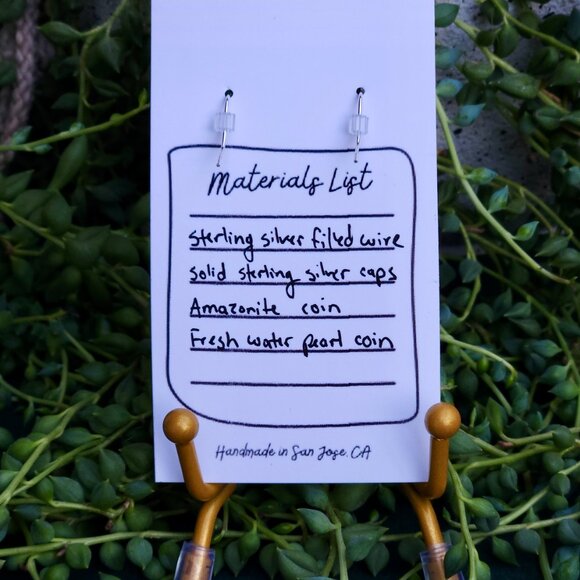 Materials List
sterling silver filled wire
solid sterling silver caps
Amazonite coin
Fresh water pearl coin
Handmade in San Jose, CA